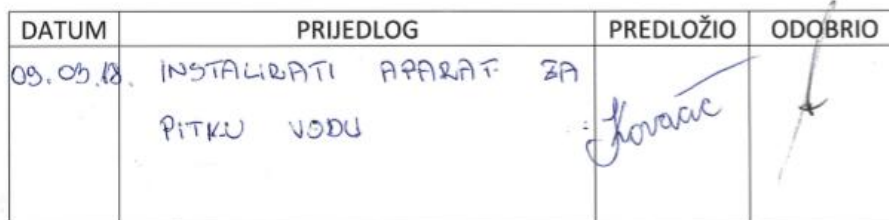 DATUM PRIJEDLOG PREDLOŽIO ODOBRIO
09.03.18. INSTALIRATI APARAT ZA
PITKU VODU Kovačić